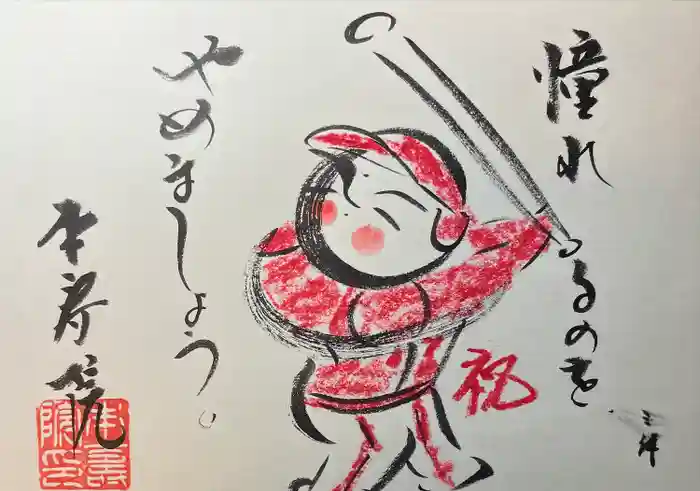 憧れるのを
やめましょう。
祝
本寿院